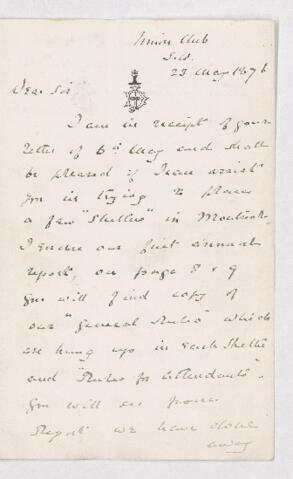 Union Club
23 May 1876
Dear Sir
I am in receipt of your
letter of 6th May and shall
be pleased if I can assist
you in trying to place
a few "Shelters" in Montreal.
I enclose our first annual
report, on page 8 & 9
you will find copy of
our "General Rules" which
are hung up in each Shelter
and "Rules for attendants".
you will see from
Report we have done
away